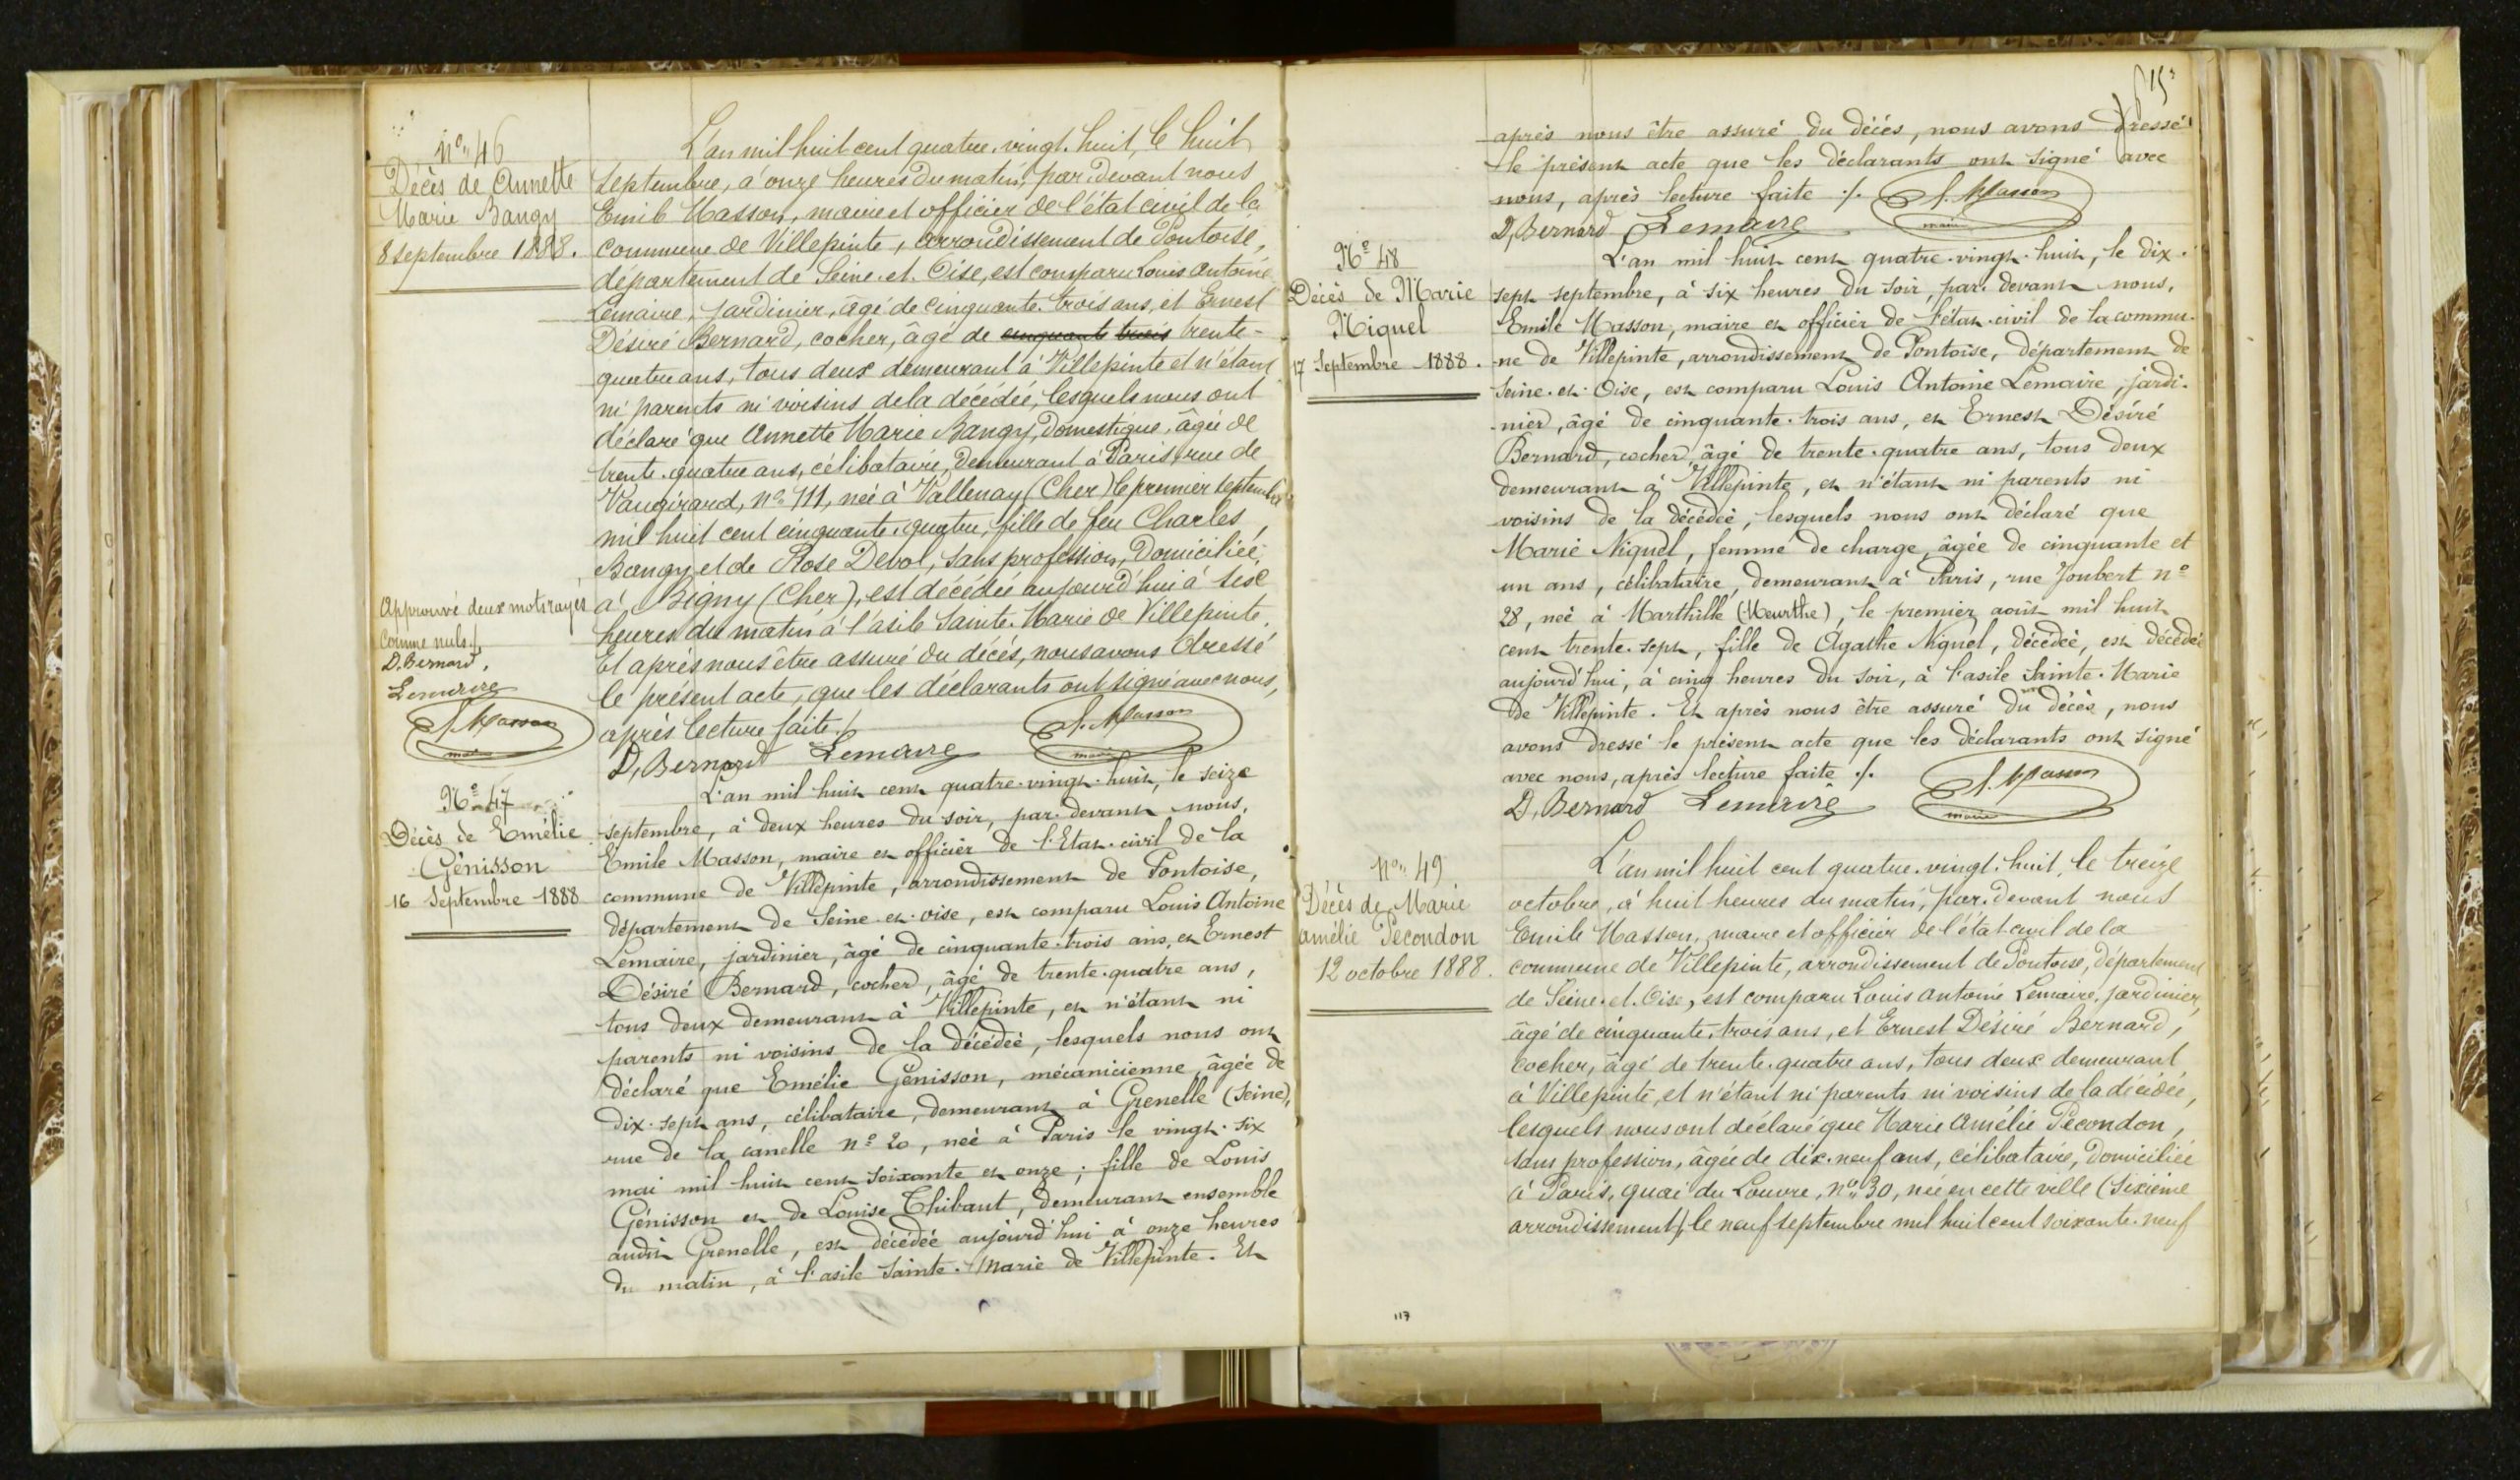 n° 46
Décès de Annette
Marie Bangy
8 septembre 1888.
L'an mil huit cent quatre-vingt-huit, le huit
septembre, à onze heures du matin, par devant nous
Emile Masson, maire et officier de l'état civil de la
commune de Villepinte, arrondissement de Pontoise,
département de Seine-et-Oise, est comparu Louis Antoine
Lemaire, jardinier, âgé de cinquante-trois ans, et Ernest
Désiré Bernard, cocher, âgé de cinquante trois trente-
quatre ans, tous deux demeurant à Villepinte et n'étant
ni parents ni voisins de la décédée, lesquels nous ont
déclaré que Annette Marie Bangy, domestique, âgée de
trente-quatre ans, célibataire, demeurant à Paris, rue de
Vaugirard, n° 111, née à Vallenay (Cher) le premier septembre
mil huit cent cinquante-quatre, fille de feu Charles
Bangy et de Rose Debol, sans profession, domiciliée
à Bigny (Cher), est décédée aujourd'hui à six
heures du matin à l'asile Sainte-Marie de Villepinte.
Et après nous être assuré du décés, nous avons dressé
le présent acte, que les déclarants ont signé avec nous,
après lecture faite ./.
D, Bernard Lemaire E. Masson
maire
Approuvé deux mots rayés
comme nuls ./.
D. Bernard,
Lemaire
E. Masson
maire
N° 47
Décès de Emélie
Génisson
16 Septembre 1888
L'an mil huit cent quatre-vingt-huit, le seize
septembre, à deux heures du soir, par-devant nous,
Emile Masson, maire et officier de l'Etat-civil de la
commune de Villepinte, arrondissement de Pontoise,
département de Seine-et-oise, est comparu Louis Antoine
Lemaire, jardinier, âgé de cinquante-trois ans, et Ernest
Désiré Bernard, cocher, âgé de trente-quatre ans,
tous deux demeurant à Villepinte, et n'étant ni
parents ni voisins de la décédée, lesquels nous ont
déclaré que Emélie Génisson, mécanicienne, âgée de
dix-sept ans, célibataire, demeurant à Grenelle (Seine),
rue de la canelle n° 20, née à Paris le vingt-six
mai mil huit cent soixante et onze ; fille de Louis
Génisson et de Louise Thibaut, demeurant ensemble
audit Grenelle, est décédée aujourd'hui à onze heures
du matin, à l'asile Sainte-Marie de Villepinte. Et
après nous être assuré du décés, nous avons dressé
le présent acte que les déclarants ont signé avec
nous, après lecture faite ./. E. Masson
D, Bernard Lemaire maire
N° 48
Décès de Marie
Niquel
17 Septembre 1888.
L'an mil huit cent quatre-vingt-huit, le dix-
sept septembre, à six heures du soir, par-devant nous,
Emile Masson, maire et officier de l'état-civil de la commu-
ne de Villepinte, arrondissement de Pontoise, département de
Seine-et-Oise, est comparu Louis Antoine Lemaire, jardi-
nier, âgé de cinquante-trois ans, et Ernest Désiré
Bernard, cocher, âgé de trente-quatre ans, tous deux
demeurant à Villepinte, et n'étant ni parents ni
voisins de la décédée, lesquels nous ont déclaré que
Marie Niquel, femme de charge, âgée de cinquante et
un ans, célibataire, demeurant à Paris, rue Joubert n°
28, née à Marthille (Meurthe), le premier août mil huit
cent trente-sept, fille de Agathe Niquel, décédée, est décédée
aujourd'hui, à cinq heures du soir, à l'asile Sainte-Marie
de Villepinte. Et après nous être assuré du décès, nous
avons dressé le présent acte que les déclarants ont signé
avec nous, après lecture faite ./. E. Masson
D, Bernard Lemaire maire
n° 49
Décès de Marie
amélie Pécondon
12 octobre 1888.
L'an mil huit cent quatre-vingt-huit, le treize
octobre, à huit heures du matin, par-devant nous
Emile Masson, maire et officier de l'état-civil de la
commune de Villepinte, arrondissement de Pontoise, département
de Seine-et-Oise, est comparu Louis Antoine Lemaire, jardinier,
âgé de cinquante-trois ans, et Ernest Désiré Bernard,
cocher, âgé de trente-quatre ans, tous deux demeurant
à Villepinte, et n'étant ni parents ni voisins de la décédée,
lesquels nous ont déclaré que Marie Amélie Pécondon,
sans profession, âgée de dix-neuf ans, célibataire, domiciliée
à Paris, quai du Louvre, n° 30, née en cette ville (sixième
arrondissement), le neuf septembre mil huit cent soixante-neuf
117